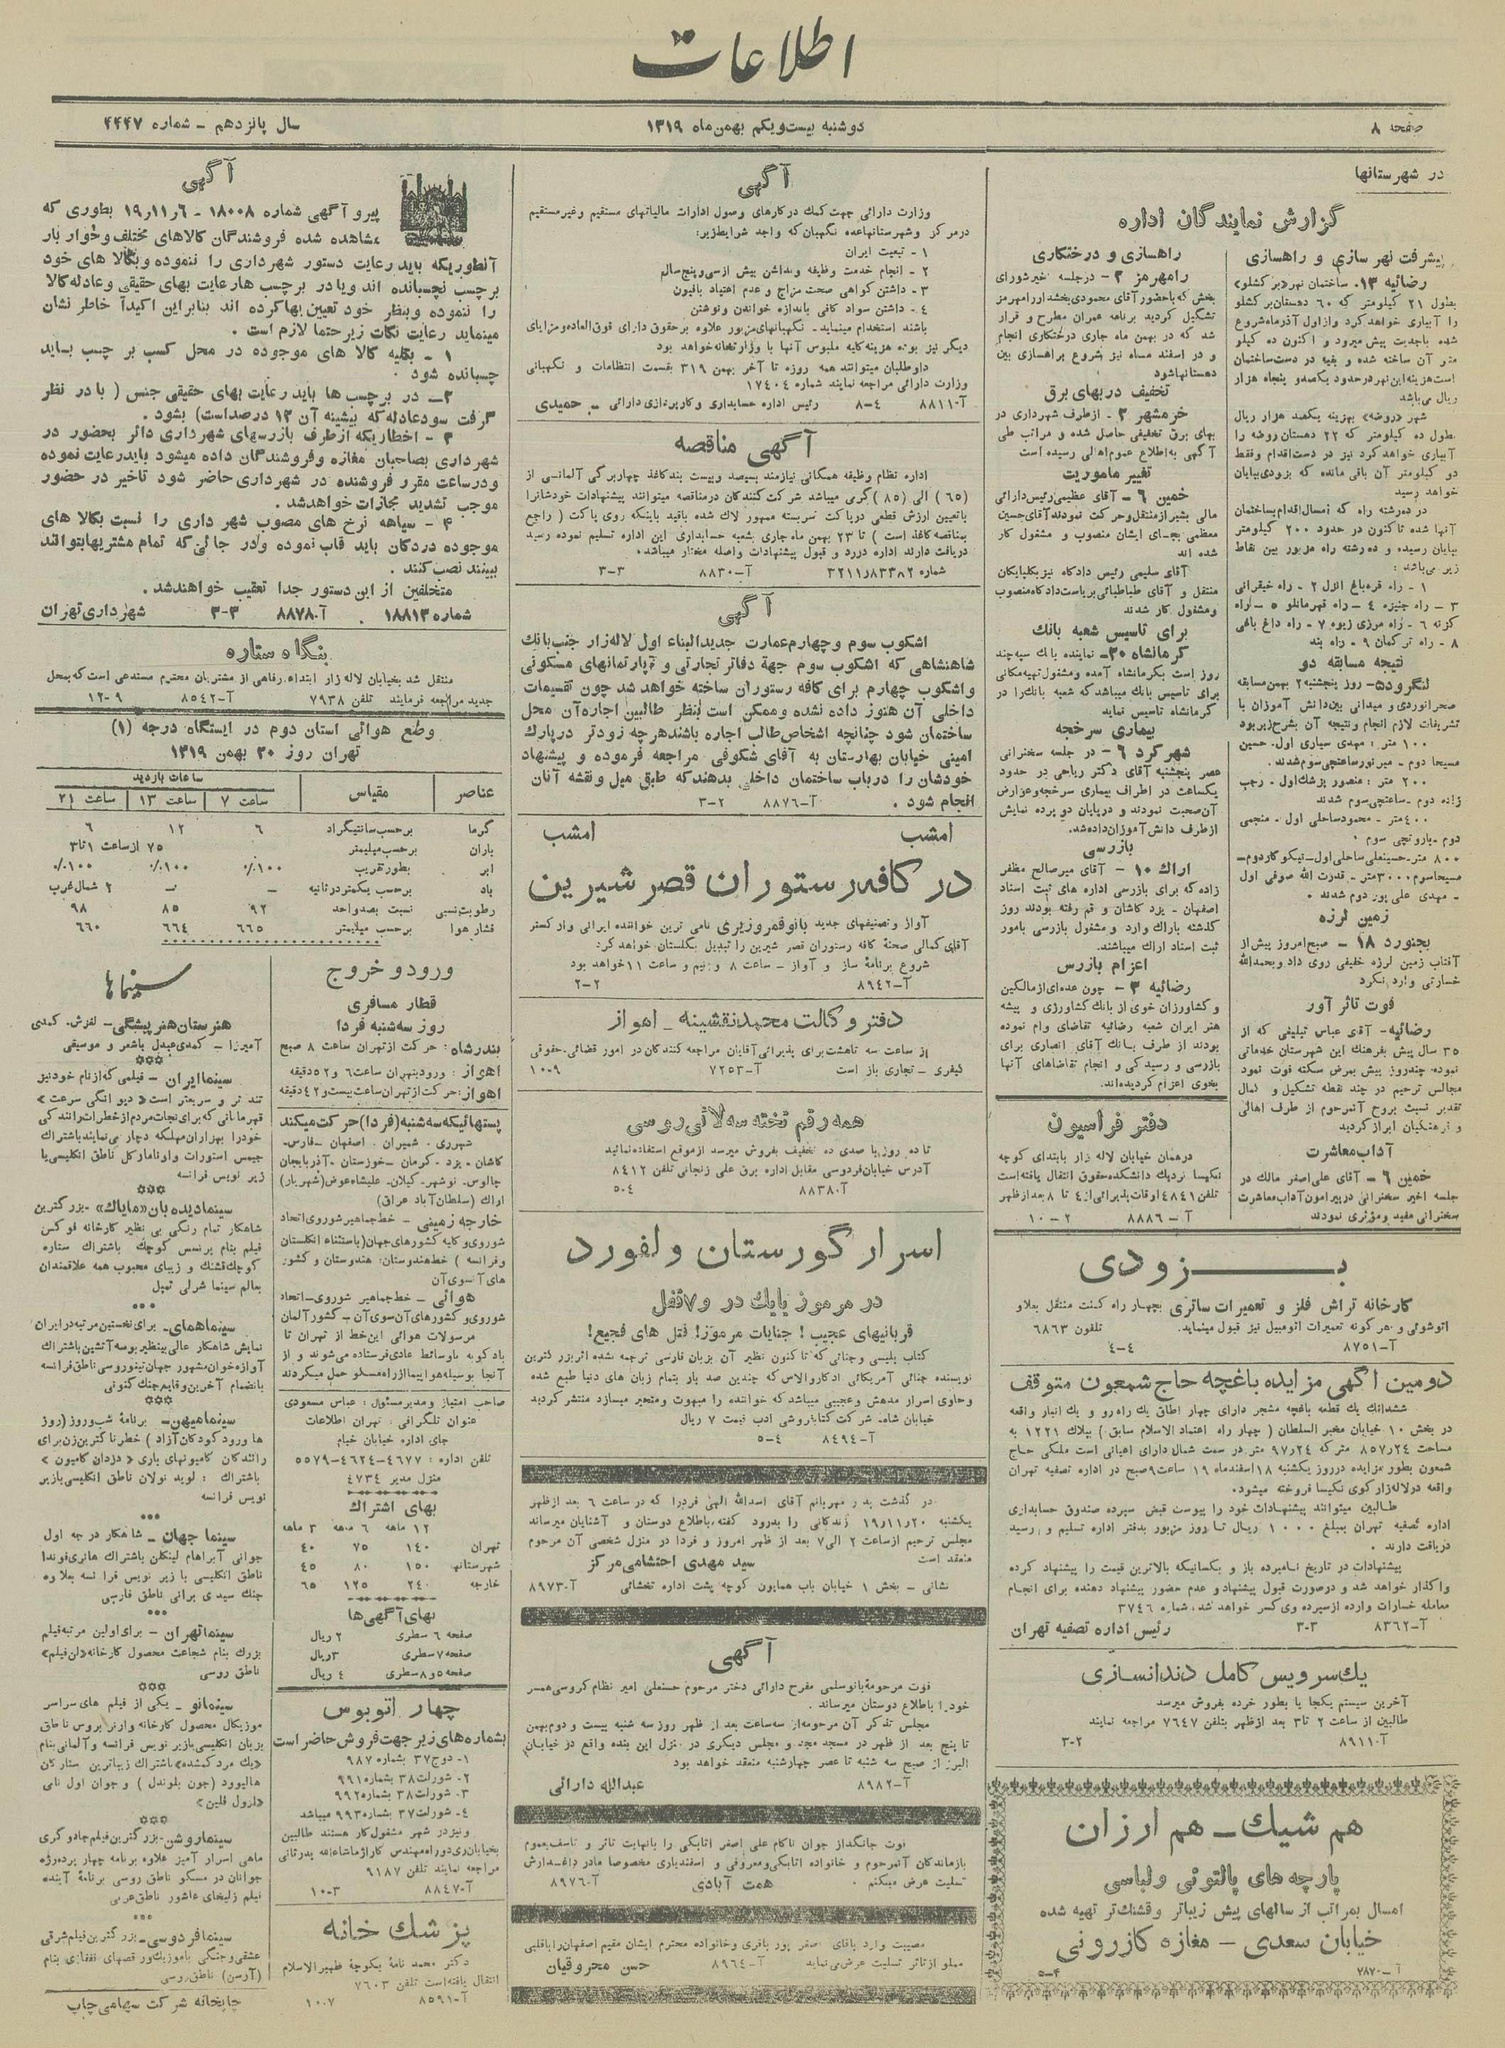 اطلاعات
صفحه ۸
دوشنبه بیست‌ویکم بهمن‌ماه ۱۳۱۹
سال پانزدهم ـ شماره ۴۴۴۷
در شهرستانها
گزارش نمایندگان اداره
پیشرفت نهرسازی و راهسازی
رضائیه ۱۳ـ ساختمان نهر«برکشلو»
بطول ۲۱ کیلومتر که ۶۰ دهستان برکشلو
را آبیاری خواهد کرد و از اول آذرماه شروع
شده باجدیت پیش میرود و اکنون ده کیلو
متر آن ساخته شده و بقیه در دست ساختمان
است هزینه این نهر در حدود یکصدو پنجاه هزار
ریال می‌باشد
شهر «روضه» بهزینه یکصد هزار ریال
بطول ده کیلومتر که ۲۲ دهستان روضه را
آبیاری خواهد کرد نیز در دست اقدام و فقط
دو کیلومتر آن باقی مانده که بزودی بپایان
خواهد رسید
در ده رشته راه که امسال اقدام بساختمان
آنها شده تاکنون در حدود ۲۰۰ کیلومتر
بپایان رسیده و ده رشته راه مزبور بین نقاط
زیر می‌باشد:
نتیجه مسابقه دو
لنگرود ۵ـ روز پنجشنبه ۲ بهمن مسابقه
صحرانوردی و میدانی بین دانش آموزان با
تشریفات لازم انجام و نتیجه آن بشرح زیر بود
۱۰۰ متر: مهدی سیاری اول ـ حسین
مسیحا دوم ـ میرنور ساعتچی سوم شدند.
۲۰۰ متر: منصور پزشک اول ـ رجب
زاده دوم ـ ساعتچی سوم شدند
۴۰۰ متر ـ محمود ساحلی اول ـ منجمی
ـ مهدی علی پور دوم شدند.
زمین لرزه
بجنورد ۱۸ ـ صبح امروز پیش از
آفتاب زمین لرزه خفیفی روی داد و بحمدالله
خسارتی وارد نکرد
فوت تاثر آور
رضائیه ـ آقای عباس تبلیغی که از
۳۵ سال پیش بفرهنگ این شهرستان خدماتی
نموده چندروز پیش بمرض سکته فوت نمود
مجالس ترحیم در چند نقطه تشکیل و کمال
تقدیر نسبت بروح آنمرحوم از طرف اهالی
و فرهنگیان ابراز گردید
آداب معاشرت
خمین ۶ ـ آقای علی‌اصغر مالک در
جلسه اخیر سخنرانی در پیرامون آداب معاشرت
سخنرانی مفید و مؤثری نمودند
راهسازی و درختکاری
رامهرمز ۲ ـ در جلسه اخیر شورای
بخش که با حضور آقای محمودی بخشدار رامهرمز
تشکیل گردید برنامه عمران مطرح و قرار
شد که در بهمن ماه جاری درختکاری انجام
و در اسفند ماه نیز شروع براهسازی بین
دهستانها شود
تخفیف در بهای برق
خرمشهر ۲ ـ از طرف شهرداری در
بهای برق تخفیفی حاصل شده و مراتب طی
آگهی به اطلاع عموم اهالی رسیده است
تغییر ماموریت
خمین ۶ ـ آقای عظیمی رئیس دارائی
محل بشیراز منتقل و حرکت نمودند آقای حسین
معظمی بجای ایشان منصوب و مشغول کار
شده اند
آقای سلیمی رئیس دادگاه نیز بگلپایگان
منتقل و آقای طباطبائی بریاست دادگاه منصوب
و مشغول کار شدند
برای تاسیس شعبه بانک
کرمانشاه ۲۰ـ نماینده بانک سپه چند
روز است بکرمانشاه آمده و مشغول تهیه مکانی
برای تاسیس بانک میباشد که شعبه بانک را در
کرمانشاه تاسیس نماید
بیماری سرخجه
شهر کرد ۶ ـ در جلسه سخنرانی
عصر پنجشنبه آقای دکتر ریاحی در حدود
یکساعت در اطراف بیماری سرخجه و عوارض
آن صحبت نمودند و در پایان دو پرده نمایش
از طرف دانش آموزان داده شد.
بازرسی
اراک ۱۰ ـ آقای میرصالح مظفر
زاده که برای بازرسی اداره های ثبت اسناد
اصفهان ـ یزد کاشان و قم رفته بودند روز
گذشته باراک وارد و مشغول بازرسی بامور
ثبت اسناد اراک میباشند.
اعزام بازرس
رضائیه ۳ ـ چون عده‌ای از مالکین
و کشاورزان خوی از بانک کشاورزی و پیشه
هنر ایران شعبه رضائیه تقاضای وام نموده
بودند از طرف بانک آقای انصاری برای
بازرسی و رسیدگی و انجام تقاضاهای آنها
بخوی اعزام گردیده‌اند.
دفتر فراسیون
در همان خیابان لاله زار بابتدای کوچه
نکیسا نزدیک دانشکده حقوق انتقال یافته است
تلفن ۴۸۴۱ اوقات پذیرائی از ۴ تا ۸ بعدازظهر
آ ـ ۸۸۸۶ ۲ ـ ۱۰
بـــــزودی
کارخانه تراش فلز و تعمیرات ساتری بچهار راه کنت منتقل بعلاو
اتوشوئی و هرگونه تعمیرات اتومبیل نیز قبول مینماید. تلفون ۶۸۶۳
آـ۸۷۵۱ ۴ـ۴
دومین آگهی مزایده باغچه حاج شمعون متوقف
ششدانگ یک قطعه باغچه مشجر دارای چهار اطاق یک راه رو و یک انبار واقعه
در بخش ۱۰ خیابان مخبرالسلطان (چهار راه اعتماد الاسلام سابق) بپلاک ۱۲۲۱ به
شمعون بطور مزایده در روز یکشنبه ۱۸ اسفندماه ۱۹ ساعت ۹صبح در اداره تصفیه تهران
واقعه در لاله‌زار کوی نکیسا فروخته میشود.
طالبین میتوانند پیشنهادات خود را پیوست قبض سپرده صندوق حسابداری
اداره تصفیه تهران بمبلغ ۱۰۰۰ ریال تا روز مزبور بدفتر اداره تسلیم و رسید
دریافت دارند.
پیشنهادات در تاریخ نامبرده باز و بکسانیکه بالاترین قیمت را پیشنهاد کرده
واگذار خواهد شد و درصورت قبول پیشنهاد و عدم حضور پیشنهاد دهنده برای انجام
معامله خسارات وارده از سپرده وی کسر خواهد شد، شماره ۳۷۴۶
آـ۸۳۶۲ ۳ـ۳ رئیس اداره تصفیه تهران
یک سرویس کامل دندانسازی
آخرین سیستم یکجا یا بطور خرده بفروش میرسد
طالبین از ساعت ۲ تا ۳ بعد ازظهر بتلفن ۷۶۴۷ مراجعه نمایند
آـ۸۹۱۱ ۲ـ۳
هم شیک ـ هم ارزان
پارچه های پالتوئی و لباسی
امسال بمراتب از سالهای پیش زیباتر و قشنگ‌تر تهیه شده
خیابان سعدی ـ مغازه کازرونی
آـ۷۸۷۰ ۴ـ۵
آگهی
وزارت دارائی جهت کمک در کارهای وصول ادارات مالیاتهای مستقیم و غیرمستقیم
در مرکز و شهرستانها عده نگهبان که واجد شرایط زیر:
۱ ـ تبعیت ایران
۲ ـ انجام خدمت وظیفه و نداشتن بیش از سی و پنج سال
۳ ـ داشتن گواهی صحت مزاج و عدم اعتیاد بافیون
۴ ـ داشتن سواد کافی باندازه خواندن و نوشتن
باشند استخدام مینماید. نگهبانهای مزبور علاوه بر حقوق دارای فوق‌العاده و مزایای
دیگر نیز بوده هزینه کلیه ملبوس آنها با وزارتخانه خواهد بود
داوطلبان میتوانند همه روزه تا آخر بهمن ۳۱۹ بقسمت انتظامات و نگهبانی
وزارت دارائی مراجعه نمایند شماره ۱۷۴۰۴
آـ۸۸۱۱ ۴ـ۸ رئیس اداره حسابداری و کارپردازی دارائی ـ حمیدی
آگهی مناقصه
اداره نظام وظیفه همگانی نیازمند بسیصد و بیست بند کاغذ چهار برگی آلمانی از
(۶۵) الی (۸۵) گرمی میباشد شرکت کنندگان در مناقصه میتوانند پیشنهادات خودشانرا
باتعیین ارزش قطعی در پاکت سربسته ممهور لاک شده باقید باینکه روی پاکت (راجع
بمناقصه کاغذ است) تا ۲۳ بهمن ماه جاری بشعبه حسابداری این اداره تسلیم نموده رسید
دریافت دارند اداره در رد و قبول پیشنهادات واصله مختار میباشد.
آـ۸۸۳۰ ۳ـ۳
آگهی
اشکوب سوم و چهارم عمارت جدیدالبناء اول لاله‌زار جنب بانک
شاهنشاهی که اشکوب سوم جهة دفاتر تجارتی و آپارتمانهای مسکونی
و اشکوب چهارم برای کافه رستوران ساخته خواهد شد چون تقسیمات
داخلی آن هنوز داده نشده و ممکن است بنظر طالبین اجاره آن محل
ساختمان شود چنانچه اشخاص طالب اجاره باشند هرچه زودتر در پارک
امینی خیابان بهارستان به آقای شکوفی مراجعه فرموده و پیشنهاد
خودشان را در باب ساختمان داخلی بدهند که طبق میل و نقشه آنان
انجام شود. آـ۸۸۷۶ ۲ـ۳
امشب امشب
در کافه رستوران قصر شیرین
آواز و تصنیفهای جدید بانو قمر وزیری نامی ترین خواننده ایرانی و ارکستر
آقای کمالی صحنهٔ کافه رستوران قصر شیرین را تبدیل بگلستان خواهد کرد:
شروع برنامهٔ ساز و آواز ـ ساعت ۸ و نیم و ساعت ۱۱ خواهد بود
آـ۸۹۴۲ ۲ـ۲
دفتر وکالت محمد نقشینه ـ اهواز
از ساعت سه تا هشت برای پذیرائی آقایان مراجعه کنندگان در امور قضائی ـ حقوقی
کیفری ـ تجاری باز است آـ۷۲۵۳ ۹ـ۱۰
همه رقم تخته سه لائی روسی
تا ده روز با صدی ده تخفیف بفروش میرسد از موقع استفاده نمائید
آدرس خیابان فردوسی مقابل اداره برق علی زنجانی تلفن ۸۴۱۲
آـ۸۸۳۸ ۴ـ۵
اسرار گورستان ولفورد
قربانیهای عجیب! جنایات مرموز! قتل های فجیع!
کتاب پلیسی و جنائی که تاکنون نظیر آن بزبان فارسی ترجمه نشده اثر بزرگترین
نویسنده جنائی آمریکائی ادگار والاس که چندین صد بار بتمام زبان های دنیا طبع شده
و حاوی اسرار مدهش و عجیبی میباشد که خواننده را مبهوت و متحیر میسازد منتشر گردید
خیابان شاه. شرکت کتابفروشی ادب قیمت ۷ ریال
آـ۸۴۹۴ ۴ـ۵
در گذشت پدر مهربانم آقای اسدالله الهی فرد را که در ساعت ۶ بعد ازظهر
یکشنبه ۱۹٫۱۱٫۲۰ زندگانی را بدرود گفته، باطلاع دوستان و آشنایان میرساند
مجلس ترحیم از ساعت ۲ الی ۷ بعد از ظهر امروز و فردا در منزل شخصی آن مرحوم
منعقد است سید مهدی احتشامی مرکز
نشانی ـ بخش ۱ خیابان باب همایون کوچه پشت اداره تخشائی آـ۸۹۷۳
آگهی
فوت مرحومهٔ بانو سلمی مفرح دارائی دختر مرحوم حسنعلی امیر نظام گروسی همسر
خود را باطلاع دوستان میرساند.
مجلس تذکر آن مرحومه از سه ساعت بعد از ظهر روز سه شنبه بیست و دوم بهمن
تا پنج بعد از ظهر در مسجد مجد و مجلس دیگری در منزل این بنده واقع در خیابان
البرز از صبح سه شنبه تا عصر چهارشنبه منعقد خواهد بود
آـ۸۹۸۲ عبدالله دارائی
فوت جانگداز جوان ناکام علی اصغر اتابکی را بانهایت تاثر و تاسف بعموم
بازماندگان آنمرحوم و خانواده اتابکی و معروفی و اسفندیاری مخصوصا مادر داغدیده‌اش
تسلیت عرض میکنم. همت آبادی آـ۸۹۷۶
مصیبت وارد باقای اصغر پور باقری و خانواده محترم ایشان مقیم اصفهان را باقلبی
مملو از تاثر تسلیت عرض می‌نماید آـ۸۹۶۴ حسن محروقیان
آگهی
پیرو آگهی شماره ۱۸۰۰۸ ـ ۱۹٫۱۱٫۶ بطوری که
مشاهده شده فروشندگان کالاهای مختلف و خوار بار
آنطوریکه باید رعایت دستور شهرداری را ننموده و بکالا های خود
برچسب نچسبانده اند و یا در برچسب ها رعایت بهای حقیقی و عادله کالا
را ننموده و بنظر خود تعیین بها کرده اند بنابراین اکیداً خاطر نشان
مینماید رعایت نکات زیر حتما لازم است.
۱ ـ بکلیه کالا های موجوده در محل کسب بر چسب باید
چسبانده شود.
۲ـ در برچسب ها باید رعایت بهای حقیقی جنس (با در نظر
گرفت سود عادله که بیشینه آن ۱۲ درصد است) بشود.
۳ ـ اخطاریکه از طرف بازرسهای شهرداری دائر بحضور در
شهرداری بصاحبان مغازه و فروشندگان داده میشود باید رعایت نموده
و در ساعت مقرر فروشنده در شهرداری حاضر شود تاخیر در حضور
موجب تشدید مجازات خواهد شد.
۴ ـ سیاهه نرخ های مصوب شهر داری را نسبت بکالا های
موجوده در دکان باید قاب نموده و در جائی که تمام مشتریها بتوانند
ببینند نصب کنند.
متخلفین از این دستور جدا تعقیب خواهند شد.
شماره ۱۸۸۱۳ آـ۸۸۷۸ ۳ـ۳ شهرداری تهران
بنگاه ستاره
منتقل شد بخیابان لاله زار ابتداء رفاهی از مشتریان محترم مستدعی است که بمحل
جدید مراجعه فرمایند تلفن ۷۹۳۸ آـ۸۵۴۲ ۹ـ۱۲
وضع هوائی استان دوم در ایستگاه درجه (۱)
تهران روز ۲۰ بهمن ۱۳۱۹
ساعات بازدید
عناصر مقیاس ساعت ۷ ساعت ۱۳ ساعت ۲۱
گرما برحسب سانتیگراد ۶ ۱۲ ۶
باران برحسب میلیمتر ۷۵ از ساعت ۱ تا ۳
ابر بطور تقریب ۱۰۰٪ ۱۰۰٪ ۱۰۰٪
باد برحسب یکمتر در ثانیه ـ ـ ۲ شمال غرب
رطوبت نسبی نسبت بصد واحد ۹۲ ۸۵ ۹۸
فشار هوا برحسب میلیمتر ۶۶۵ ۶۶۴ ۶۶۰
ورود و خروج
قطار مسافری
روز سه شنبه فردا
بندرشاه: حرکت از تهران ساعت ۸ صبح
اهواز: ورود بتهران ساعت ۶ و ۵۲ دقیقه
اهواز: حرکت از تهران ساعت بیست و ۴۲ دقیقه
پستهائیکه سه شنبه (فردا) حرکت میکند
شهرری ـ شمیران ـ اصفهان ـ فارس ـ
کاشان ـ یزد ـ کرمان ـ خوزستان ـ آذربایجان
چالوس ـ نوشهر ـ گیلان ـ علیشاه‌عوض (شهریار)
اراک (سلطان آباد عراق)
خارجه زمینی ـ خط جماهیر شوروی اتحاد
شوروی و کلیه کشورهای جهان (باستثناء انگلستان
و فرانسه) خط هندوستان: هندوستان و کشور
های آنسوی آن
هوائی ـ خط جماهیر شوروی ـ اتحاد
شوروی و کشورهای آن سوی آن ـ کشور آلمان
مرسولات هوائی این خط از تهران تا
بادکوبه با وسائط عادی فرستاده می‌شوند و از
آنجا بوسیله هواپیما از راه مسکو حمل میگردند
صاحب امتیاز و مدیر مسئول: عباس مسعودی
عنوان تلگرافی: تهران اطلاعات
جای اداره خیابان خیام
تلفن اداره: ۴۶۷۷ـ۴۶۲۴ـ۵۵۷۹
منزل مدیر ۴۷۳۴
بهای اشتراک
۱۲ ماهه ۶ ماهه ۳ ماهه
تهران ۱۴۰ ۷۵ ۴۰
شهرستانها ۱۵۰ ۸۰ ۴۵
خارجه ۲۴۰ ۱۲۵ ۶۵
بهای آگهی‌ها
صفحه ۶ سطری ۲ ریال
صفحه ۷ سطری ۳ ریال
صفحه ۵ و ۸ سطری ۴ ریال
چهار اتوبوس
بشماره‌های زیر جهت فروش حاضر است
۱ـ دوج ۳۷ بشماره ۹۸۷
۲ـ شورلت ۳۸ بشماره ۹۹۱
۳ـ شورلت ۳۸ بشماره ۹۹۲
۴ـ شورلت ۳۷ بشماره ۹۹۳ میباشد
و نیز در شهر مشغول کار هستند طالبین
بخیابان ری دوراه مهندس گاراژ ماشاءالله پدرثانی
مراجعه نمایند تلفن ۹۱۸۷
آـ۸۸۴۷ ۳ـ۱۰
پزشک خانه
دکتر محمد نامهٔ بکوچهٔ ظهیرالاسلام
انتقال یافته است تلفن ۷۶۰۳
آـ۸۵۹۱ ۷ـ۱۰
سینماها
هنرستان هنرپیشگی ـ لغزش ـ کمدی
آمیرزا ـ کمدی عبدل باشعر و موسیقی
سینما ایران ـ فیلمی که از نام خود نیز
تند تر و سریعتر است «دیوانگی سرعت»
قهرمانانی که برای نجات مردم از خطرات رانندگی
خود را بهزاران مهلکه دچار می‌نمایند باشتراک
جیمس استوارت و اونا مارکل ناطق انگلیسی با
زیر نویس فرانسه
سینما دیده بان «مایاک» ـ بزرگترین
شاهکار تمام رنگی بی نظیر کارخانه فوکس
فیلم بنام پرنسس کوچک باشتراک ستاره
کوچک قشنگ و زیبای محبوب همه علاقمندان
بعالم سینما شرلی تمپل
سینما همای ـ برای نخستین مرتبه در ایران
نمایش شاهکار عالی بینظیر بوسه آتشین باشتراک
آوازه خوان مشهور جهان تینو روسی ناطق فرانسه
بانضمام آخرین وقایع جنگ کنونی
سینما میهن ـ برنامهٔ شب و روز (روز
ها ورود کودکان آزاد) خطرناکترین زن برای
رانندگان کامیونهای باری «دزدان کامیون»
باشتراک: لوید نولان ناطق انگلیسی با زیر
نویس فرانسه
سینما جهان ـ شاهکار درجه اول
جوانی آبراهام لینکلن باشتراک هانری فوندا
ناطق انگلیسی با زیر نویس فرانسه بعلاوه
جنگ سیدی برانی ناطق فارسی
سینما تهران ـ برای اولین مرتبه فیلم
بزرگ بنام شجاعت محصول کارخانه «لن فیلم»
ناطق روسی
سینما نو ـ یکی از فیلم های سراسر
موزیکال محصول کارخانه وارنر بروس ناطق
بزبان انگلیسی با زیر نویس فرانسه و آلمانی بنام
«یک مرد گمشده» باشتراک زیباترین ستارگان
هالیوود (جون بلوندل) و جوان اول نامی
«ارول فلین»
سینما روشن ـ بزرگترین فیلم جادوگری
ماهی اسرار آمیز علاوه برنامه چهار پرده رژه
جوانان در مسکو ناطق روسی برنامهٔ آینده
فیلم زلیخای عاشور ناطق عربی
سینما فردوسی ـ بزرگترین فیلم شرقی
عشقی و جنگی باموزیک و رقصهای قفقازی بنام
(آرسن) ناطق روسی
چاپخانه شرکت سهامی چاپ